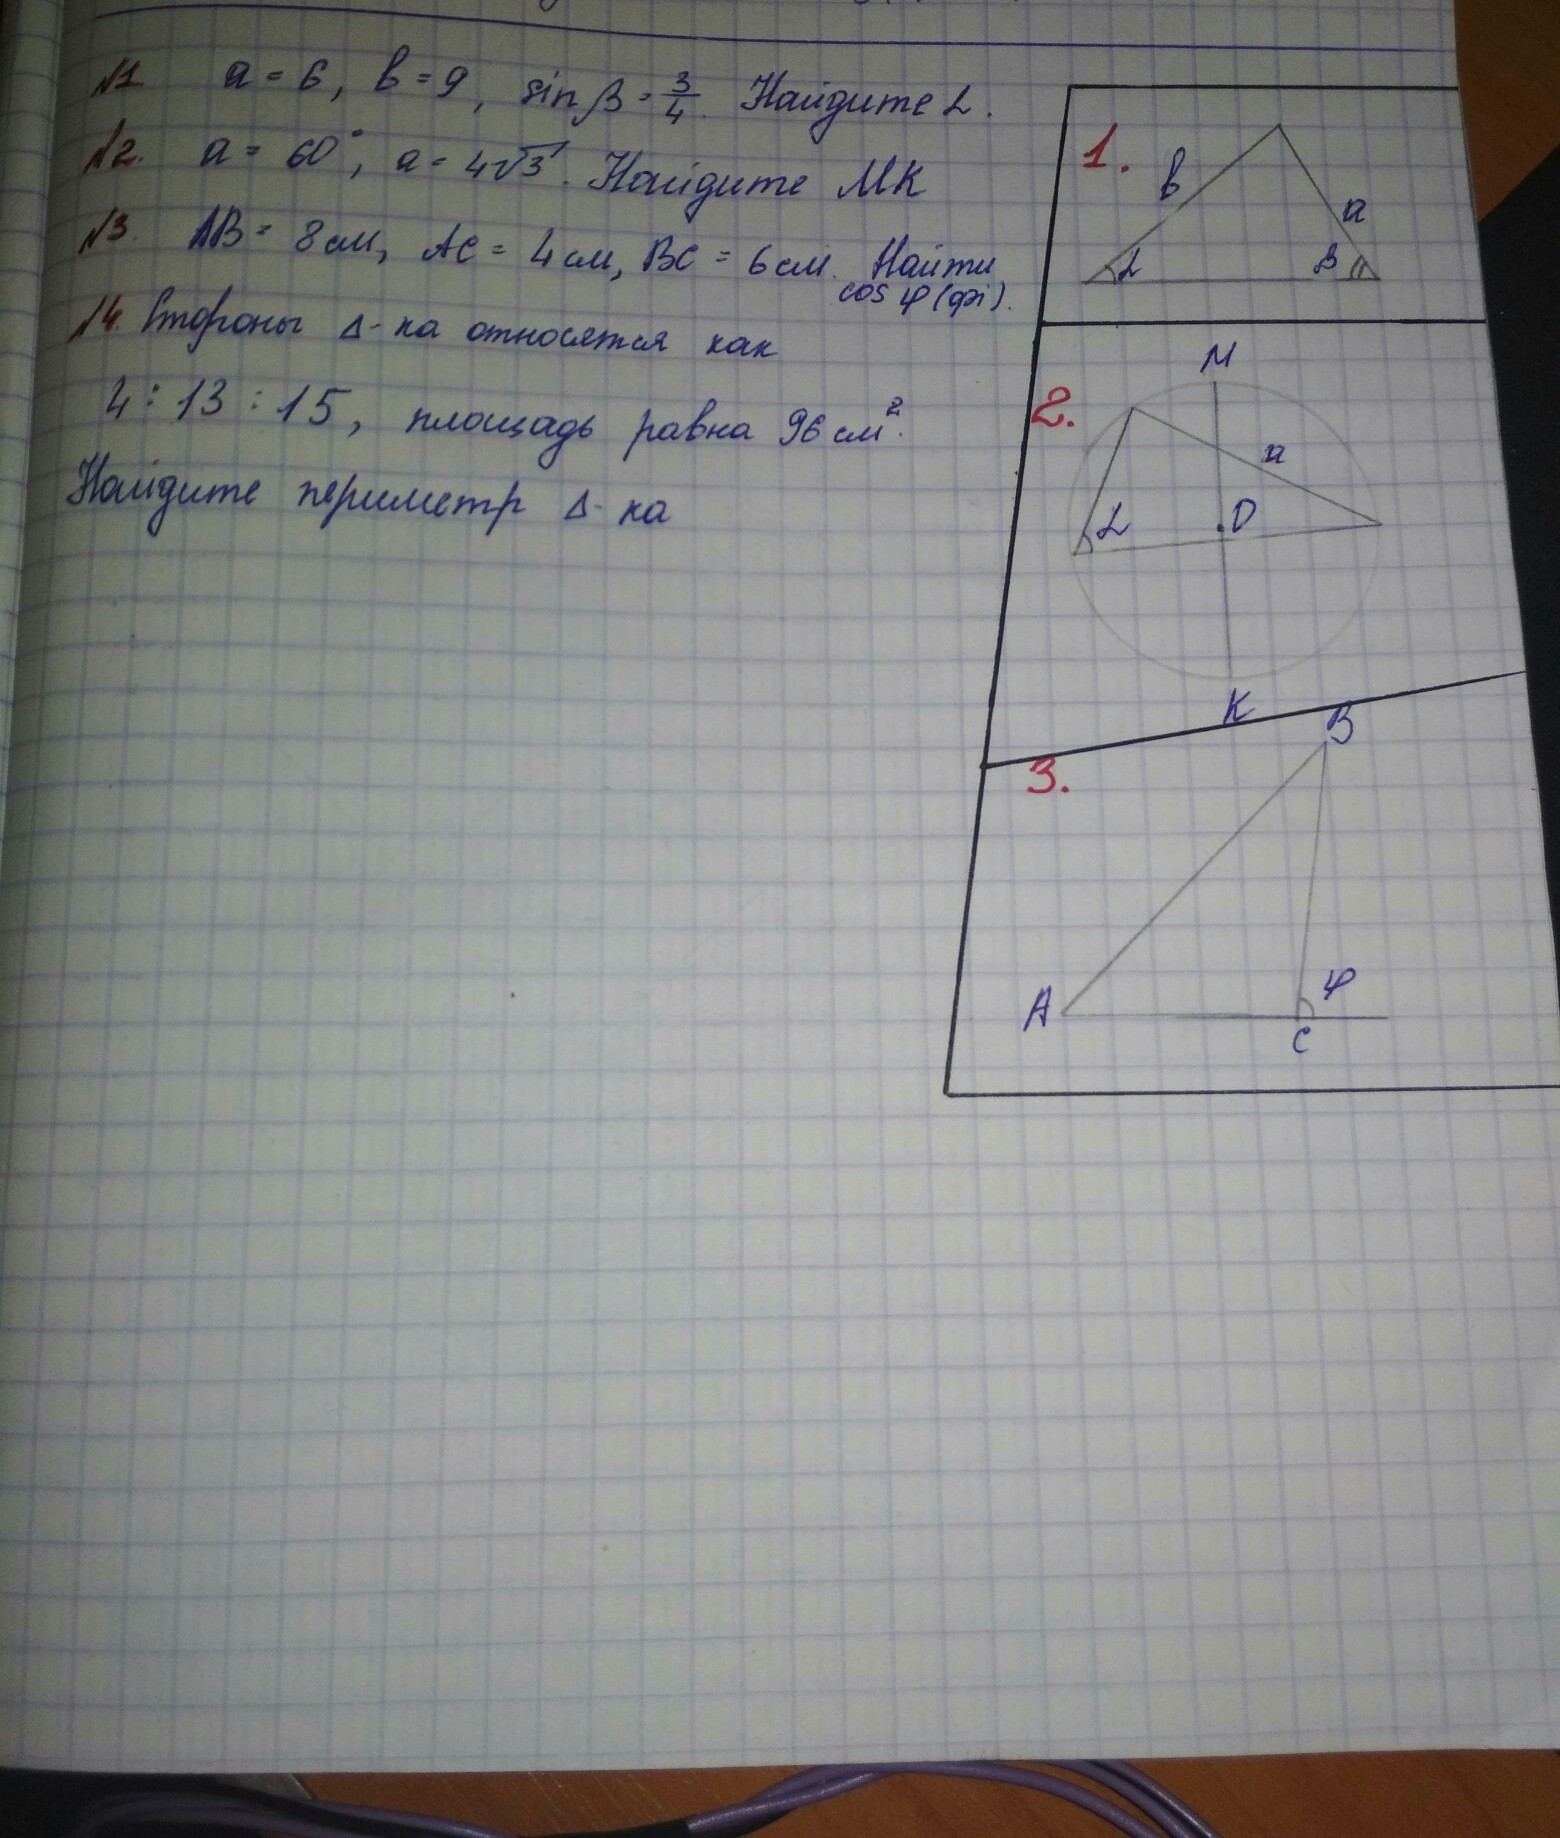 №1 a = 6, b = 9, sin β = 3/4. Найдите α.
№2. a = 60°, a = 4√3. Найдите МК
№3. АВ = 8 см, АС = 4 см, ВС = 6 см. Найти
cos φ (фі).
№4. Стороны Δ-ка относятся как
4 : 13 : 15, площадь равна 96 см².
Найдите периметр Δ-ка
1.
b
a
α
β
2.
M
a
α
O
K
3.
B
A
φ
C